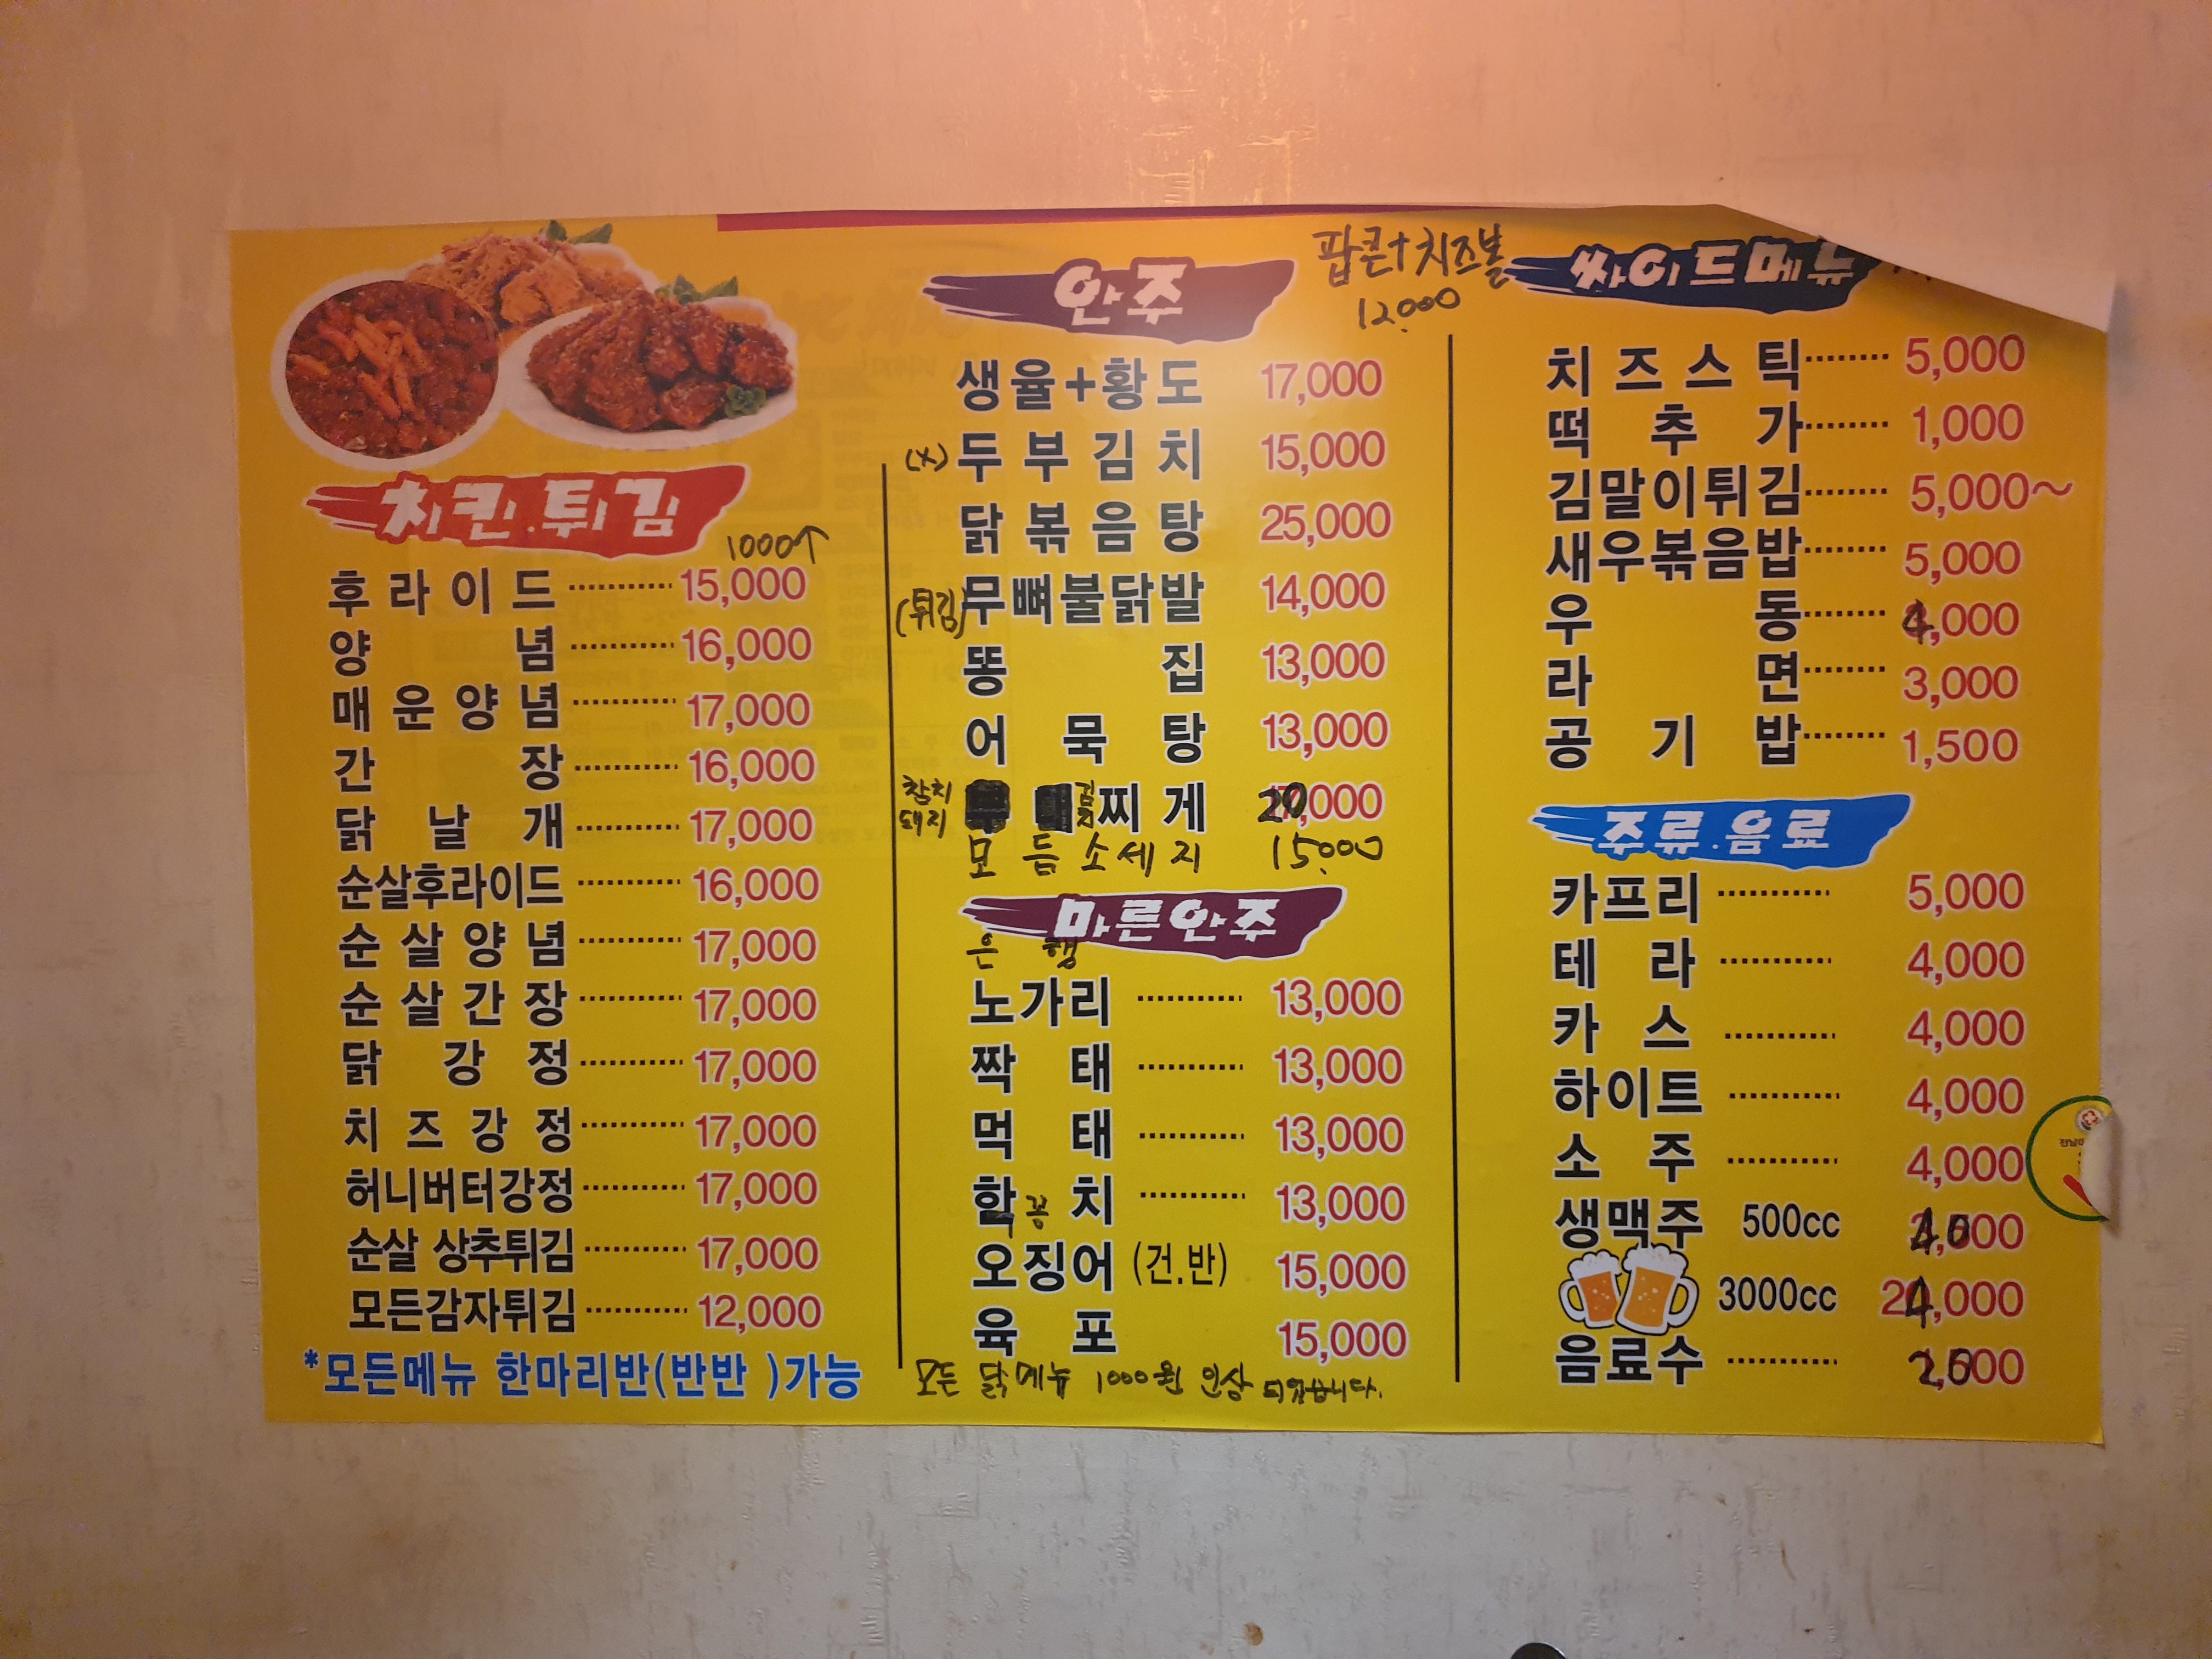 치킨.튀김
1000↑
후라이드 15,000
양념 16,000
매운양념 17,000
간장 16,000
닭날개 17,000
순살후라이드 16,000
순살양념 17,000
순살간장 17,000
닭강정 17,000
치즈강정 17,000
허니버터강정 17,000
순살 상추튀김 17,000
모든감자튀김 12,000
*모든메뉴 한마리반(반반 )가능
안주
생율+황도 17,000
(x) 두부김치 15,000
닭볶음탕 25,000
(튀김) 무뼈불닭발 14,000
똥집 13,000
어묵탕 13,000
참치
돼지 김찌게 20,000
모듬소세지 15,000
마른안주
은행
노가리 13,000
짝태 13,000
먹태 13,000
학꽁치 13,000
오징어 (건.반) 15,000
육포 15,000
모든 닭메뉴 1000원 인상 되었습니다.
팝콘+치즈볼
12,000
싸이드메뉴
치즈스틱 5,000
떡추가 1,000
김말이튀김 5,000~
새우볶음밥 5,000
우동 4,000
라면 3,000
공기밥 1,500
주류.음료
카프리 5,000
테라 4,000
카스 4,000
하이트 4,000
소주 4,000
생맥주 500cc
3000cc 24,000
음료수